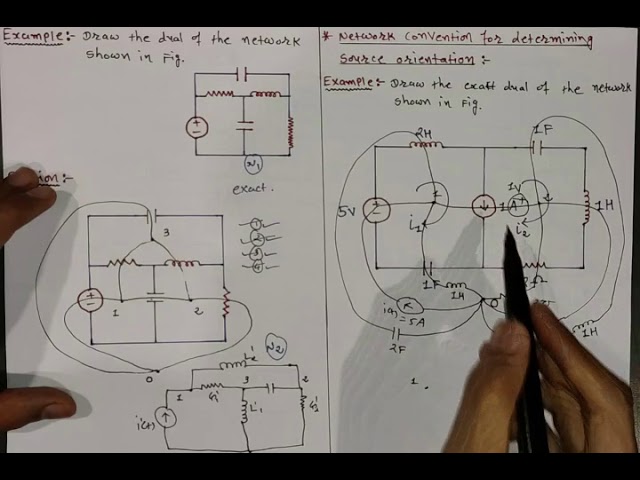 Example:- Draw the dual of the network
shown in Fig.
N1
exact.
1
2
3
4
3
1
2
0
N2
1
3
2
i(t)
* Network convention for determining
source orientation:-
Example:- Draw the exact dual of the network
shown in Fig.
2H
1F
5V
1
1A
1V
1H
i1
i2
1F
1H
0
= 5A
2F
1H
1.